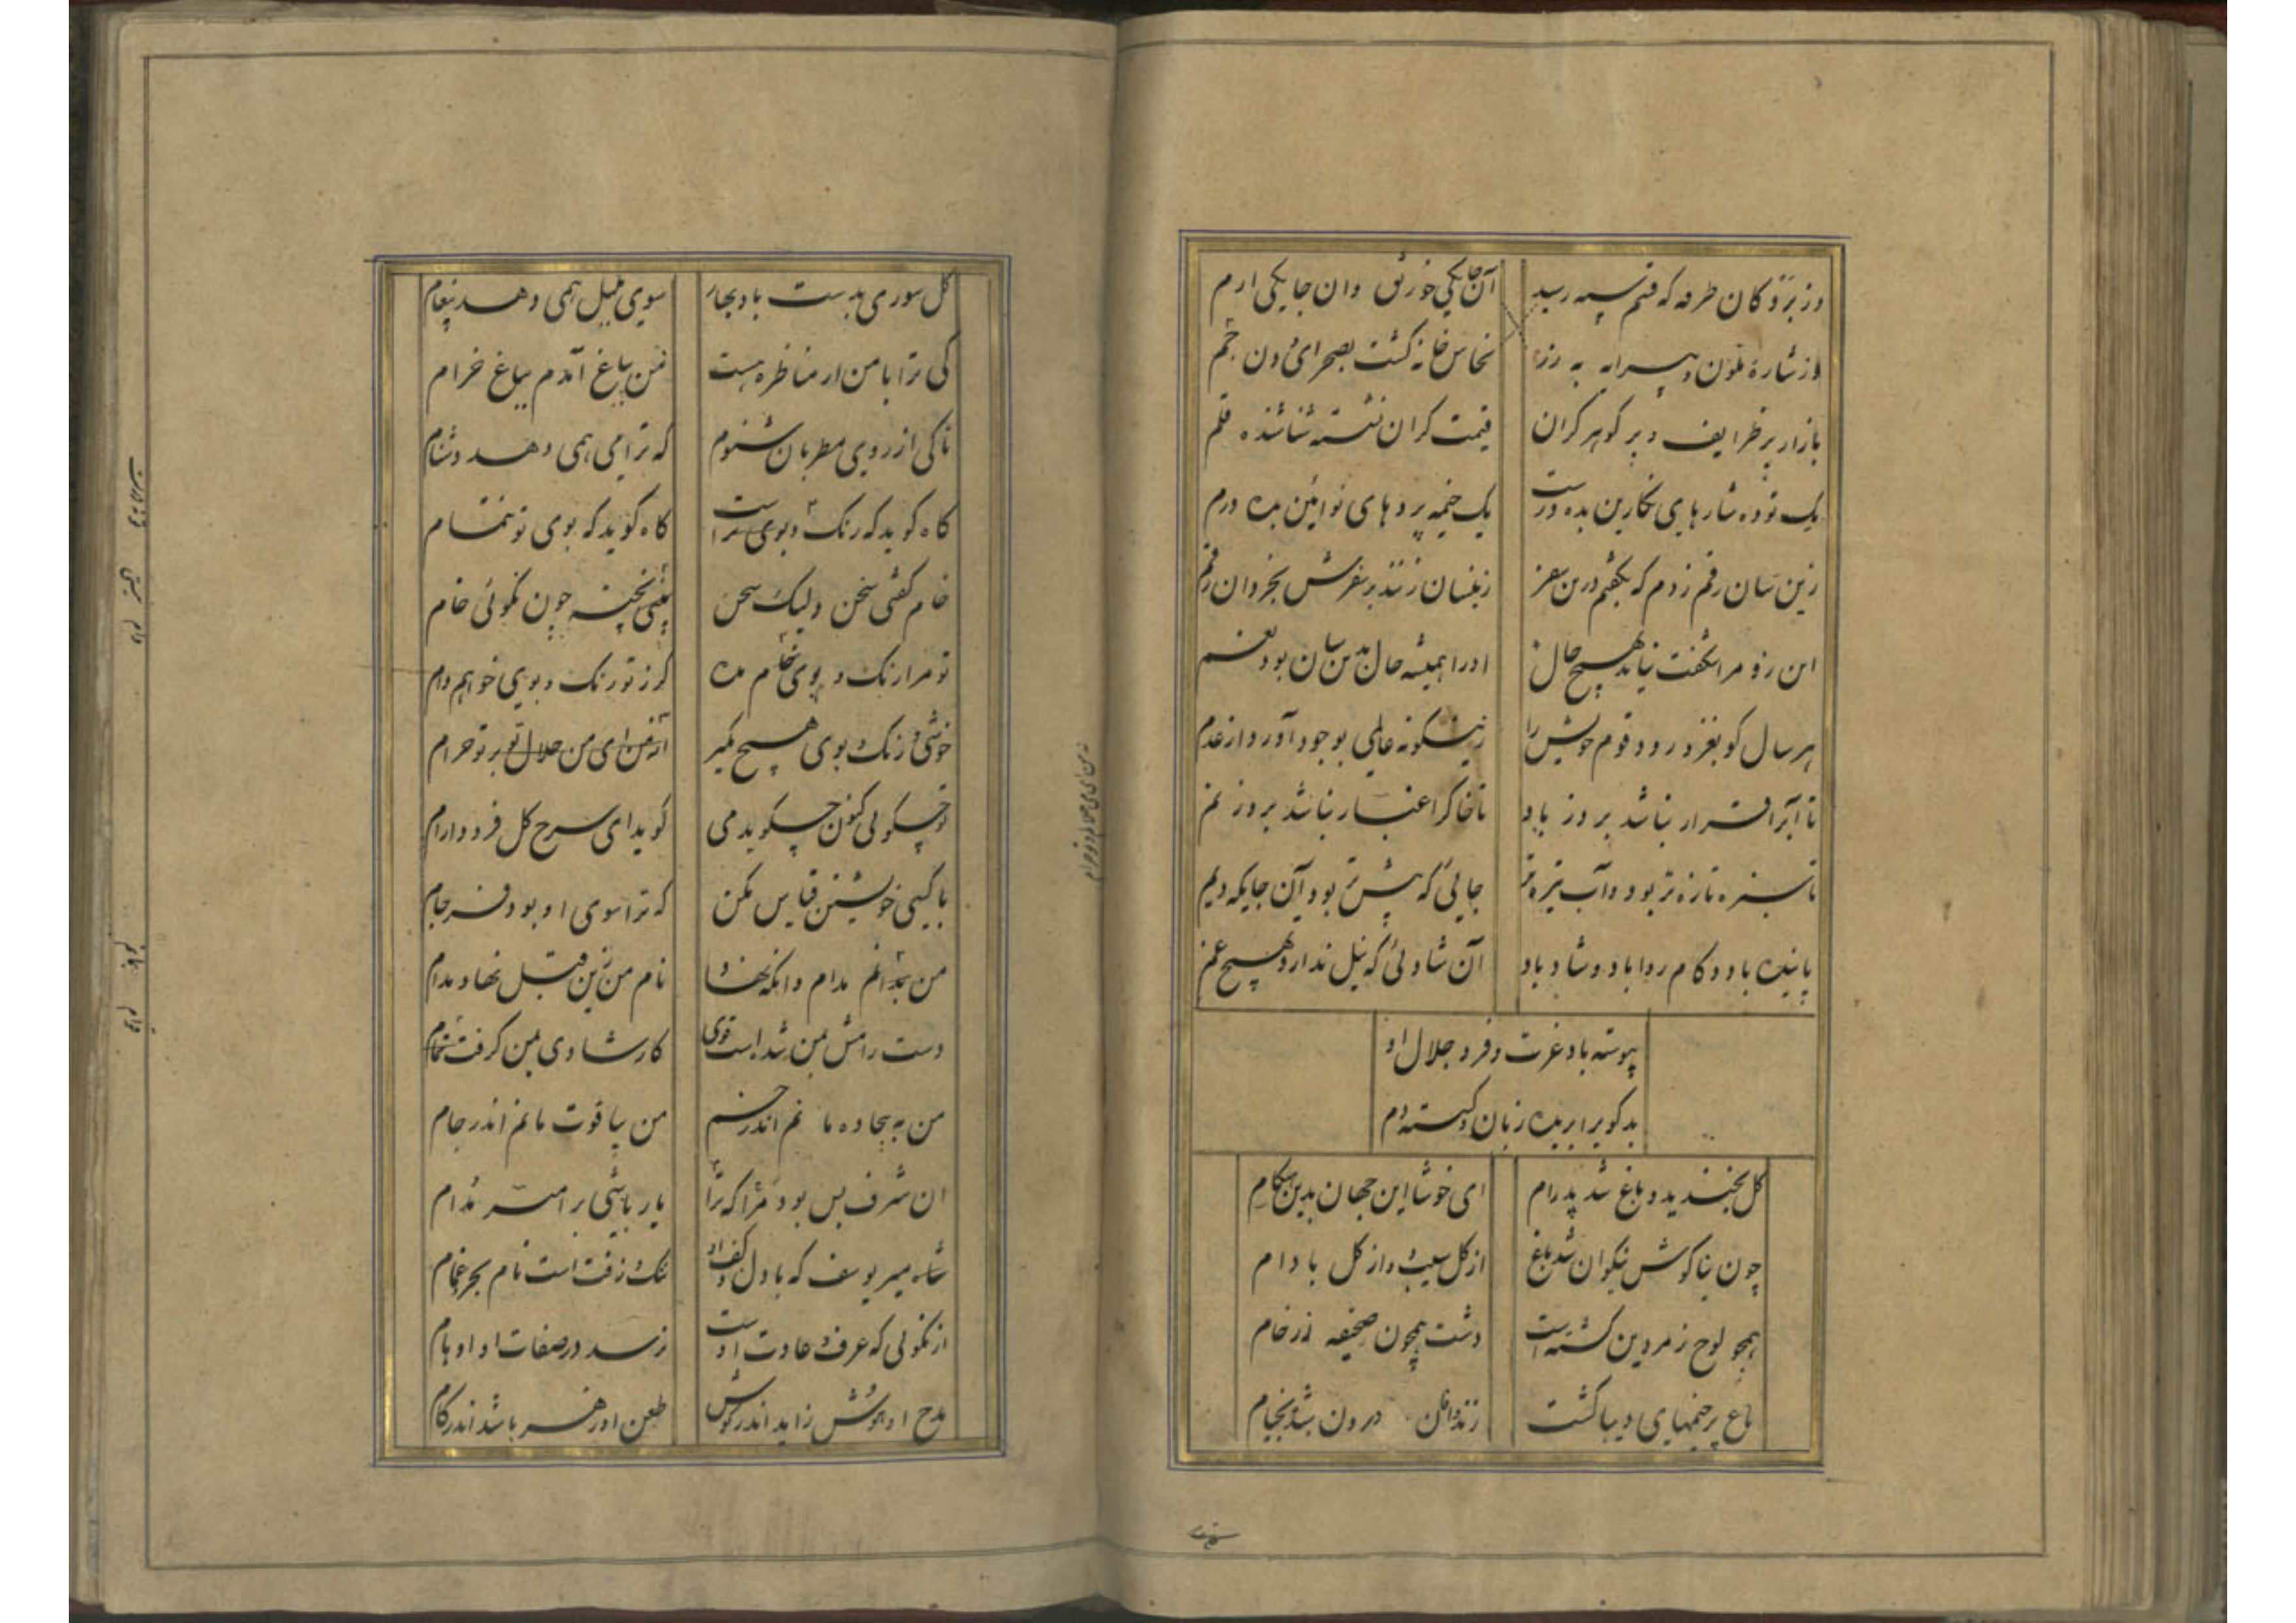 وز بزدکان طرفه که قسم سپه رسید آن جایکی خورنق وان جایکی ارم
از شارهٔ ملون و پیرایه به زر نخاس خانه کشت بصحرای دون خیم
بازار پر ظرایف و پر کوهر کران قیمت کران نشسته شناسنده قلم
یک توده شارهای نکارین بده درست یک خیمه بردهای نوائین بده درم
زین سان رقم زدم که بکفتم درین سفر زینسان زنند بر سفرش بخردان رقم
این زو مرا شکفت نیاید بهیچ حال او را همیشه حال بدین سان بود
هر سال کو بغزو رود قوم خویش را زینکونه عالمی بوجود آورد از عدم
تا آبرا قرار نباشد بروز باد تا خاکرا غبار نباشد بروز نم
تا سبزه تازه تر بود و آب تیره تر جائی که بیشتر بود آن جایکه دیم
پاینده باد و کام روا باد و شاد باد آن شادئی که نیل ندارد بهیچ غم
پیوسته باد عزت و فر و جلال او
بدکوی را بریده زبان و کسسته دم
کل بخندید و باغ شد پدرام ای خوشا این جهان بدین هنکام
چون بناکوش نیکوان شد باغ از کل سیب و از کل بادام
همچو لوح زمردین کشته است دشت همچون صحیفه ز رخام
باغ پر خیمهای دیبا کشت زند وافان درون شده بخیام
کل سوری بدست باد بهار سوی مل همی دهد پیغام
کی ترا با من ار مناظره هست من بباغ آمدم بباغ خرام
تا کی از روی مطربان شنوم که ترا می همی دهد دشنام
کاه کوید که رنک و بوی تراست کاه کوید که بوی تو نمام
خام کفتی سخن ولیک سخن پختی پخته چون نکوئی خام
تو مرا رنک و بوی خام مده کر ز تو رنک و بوی خواهم وام
خوشی و رنک و بوی هیچ مکیر از من ای من حلال تو بر تو حرام
تو چکوئی کنون چکوید می کوید ای سرخ کل فرود آرام
با کسی خویشتن قیاس مکن که ترا سوی او بود فرجام
من بدانم مدام وانکه نهاد نام من زین قبل نهاد مدام
دست رامش بمن شد است قوی کار شادی بمن کرفت نظام
من به بیجاده مانم اندر خم من بیاقوت مانم اندر جام
ان شرف بس بود مرا که ترا بار باشی بر امیر مدام
شاه میر یوسف که با دل و کف او ننک زفت است نام بحر و غمام
از نکوئی که عرف و عادت اوست نرسد در صفات او اوهام
مدح او هوش زاید اندر کوش طعن او زهر باشد اندر کام
ز من ای می حلال و بر تو حرام